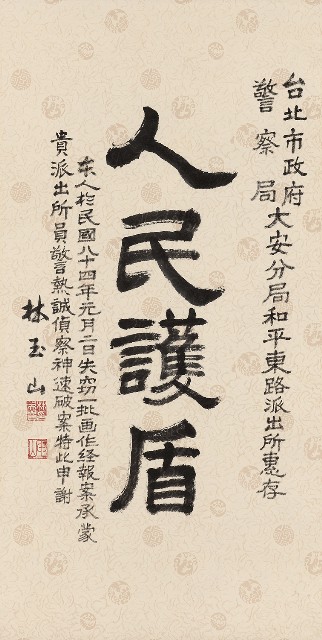 台北市政府
警察局
大安分局和平東路派出所惠存
人民護盾
本人於民國八十四年元月二日失窃一批画作経報案承蒙
貴派出所員警熱誠偵察神速破案特此申謝
林玉山